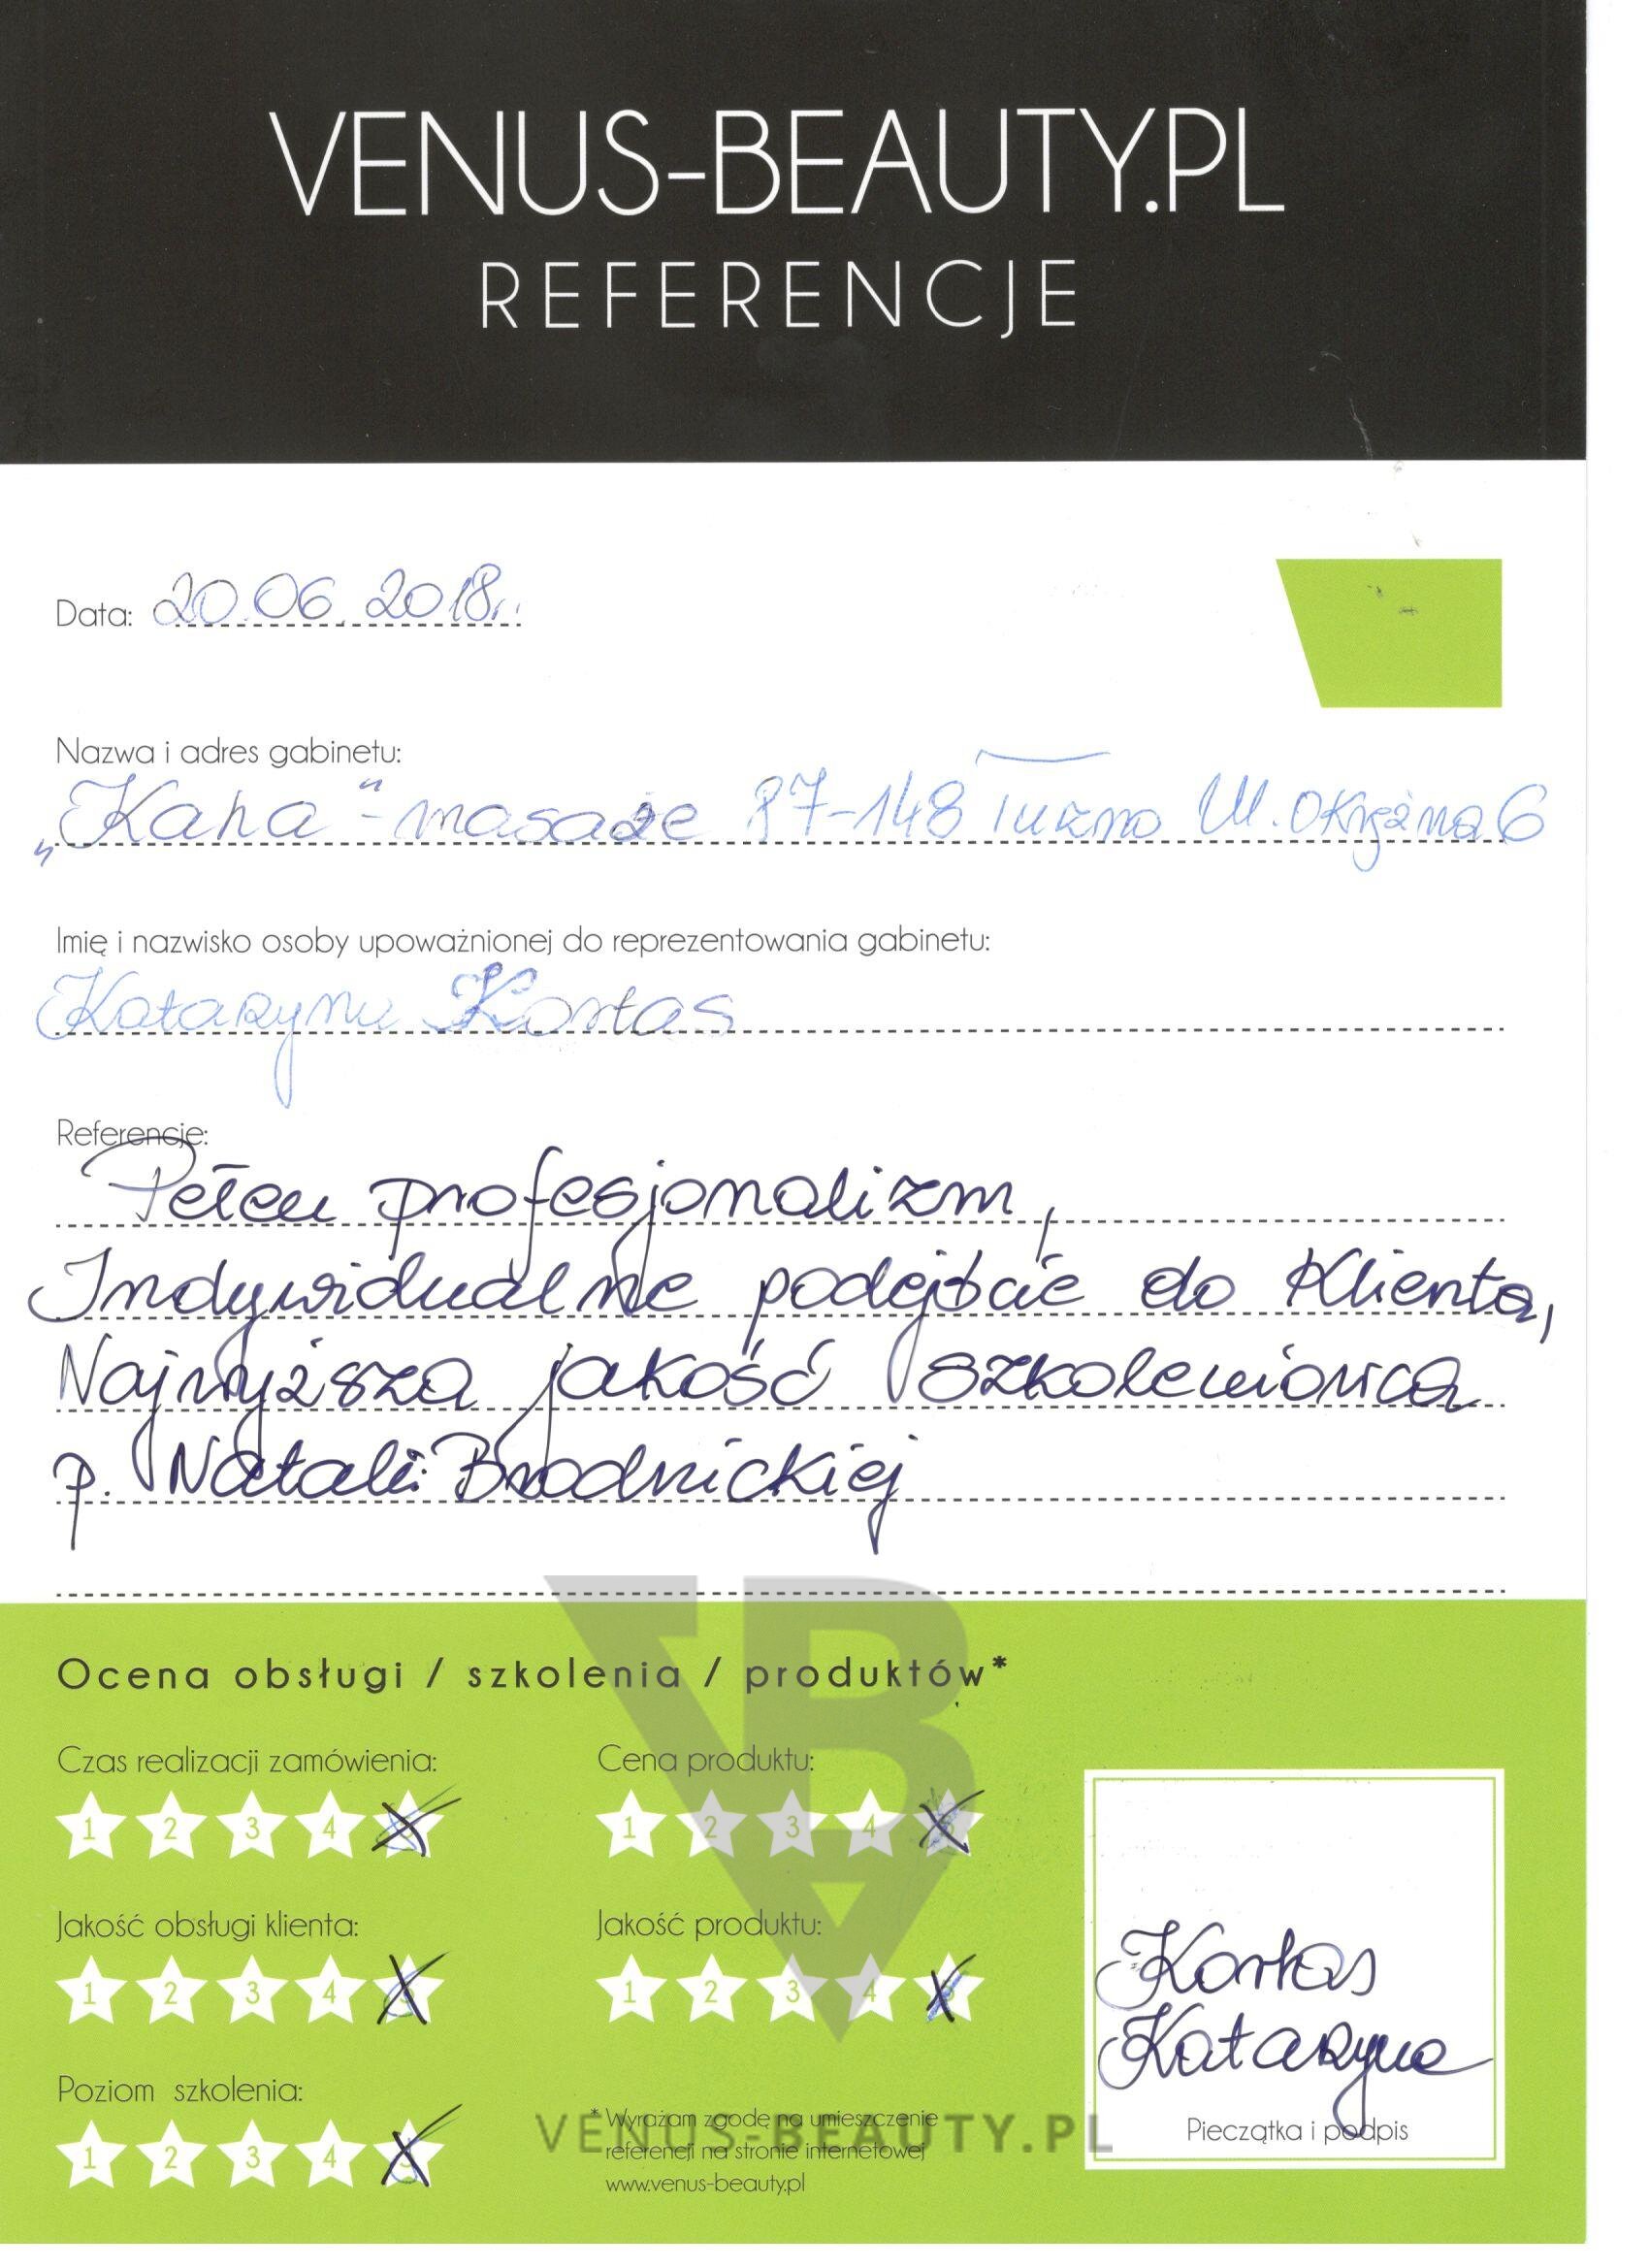 VENUS-BEAUTY.PL
REFERENCJE
Data: 20.06.2018r.
Nazwa i adres gabinetu:
„Kaha" - masaże 87-148 Łuzno Ul. Okrężna 6
Imię i nazwisko osoby upoważnionej do reprezentowania gabinetu:
Katarzyna Kortas
Referencje:
Pełen profesjonalizm,
Indywidualne podejście do Klienta,
Najwyższa jakość szkoleniowca
p. Natali Brodnickiej
Ocena obsługi / szkolenia / produktów*
Czas realizacji zamówienia: Cena produktu:
1 2 3 4 1 2 3 4
Jakość obsługi klienta: Jakość produktu:
1 2 3 4 1 2 3 4
Kortas
Katarzyna
Poziom szkolenia:
1 2 3 4
* Wyrażam zgodę na umieszczenie
referencji na stronie internetowej
www.venus-beauty.pl
Pieczątka i podpis
VB
VENUS-BEAUTY.PL